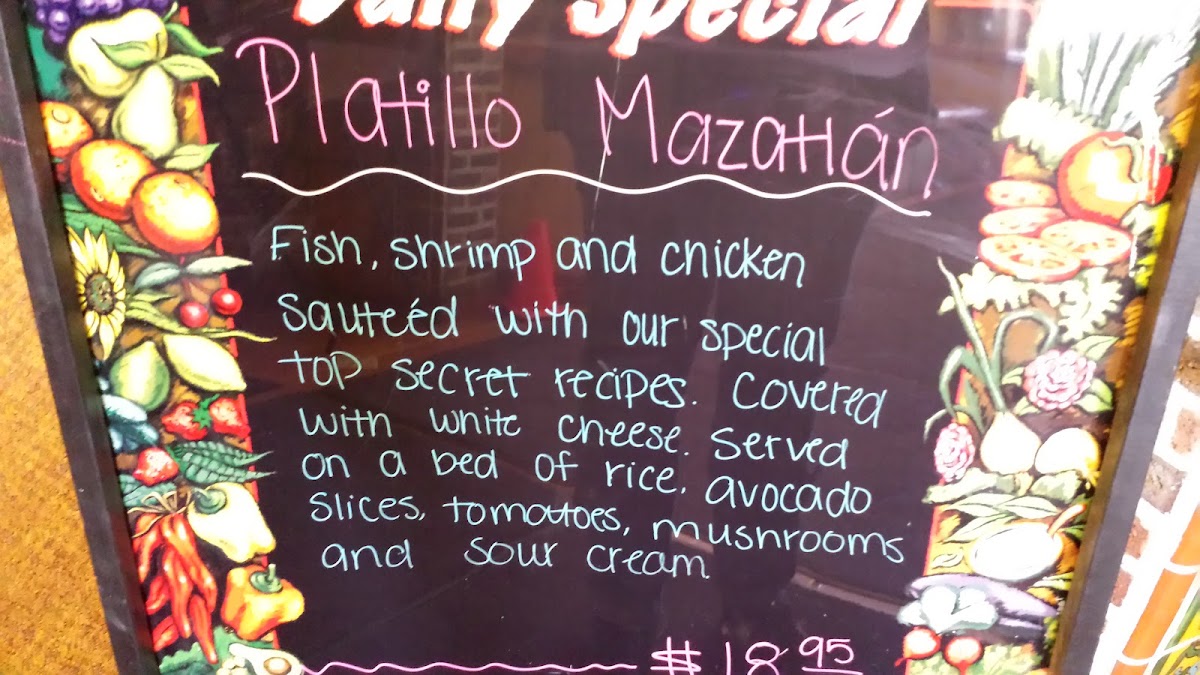 Daily Special
Platillo Mazatlán
Fish, shrimp and chicken
sauteéd with our special
top secret recipes. Covered
with white cheese. Served
on a bed of rice, avocado
slices, tomatoes, mushrooms
and sour cream
$18.95